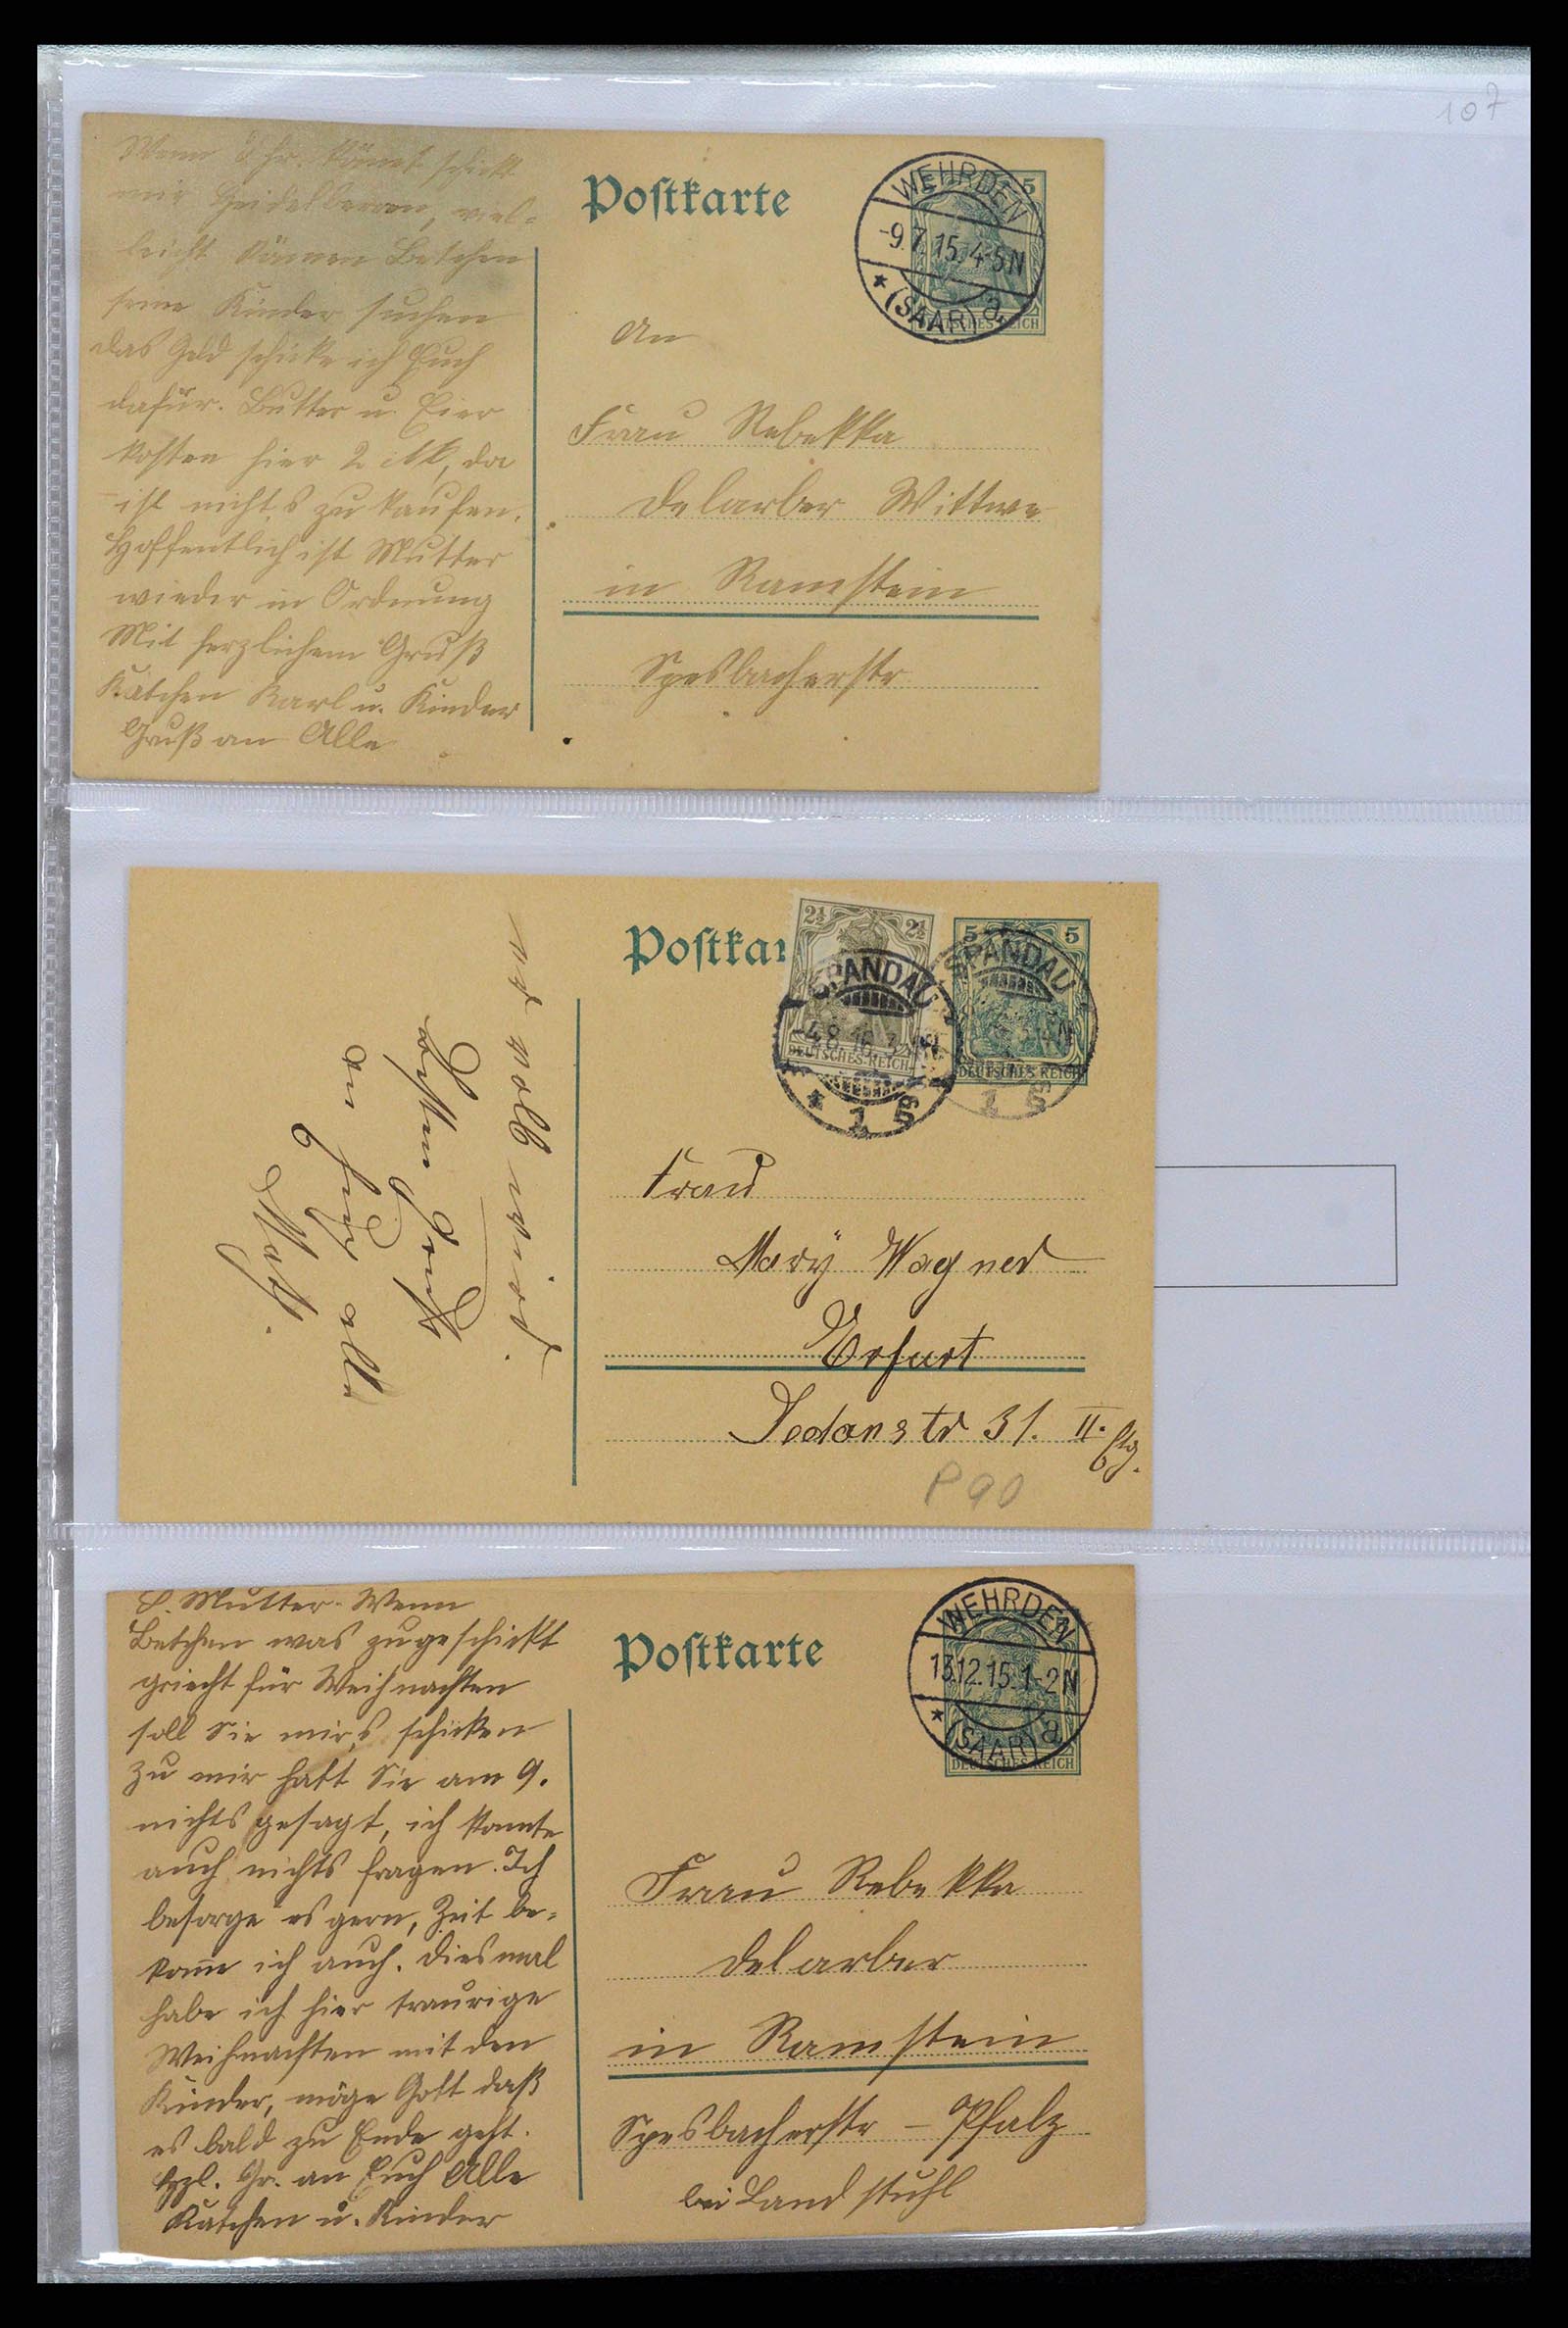 107
Wenn Ihr könnt schickt
mir Heidelbeeren, viel-
leicht können Betchen
seine Kinder suchen
das Geld schicke ich Euch
dafür. Butter u. Eier
kosten hier 2 Mk, da
ist nichts zu kaufen.
Hoffentlich ist Mutter
wieder in Ordnung
Mit herzlichem Gruß
Kätchen Karl u. Kinder
Gruß an Alle
Postkarte
5
WEHRDEN
-9.7.15.4-5N
* (SAAR) a
DEUTSCHES REICH
An
Frau Rebekka
Delarber Wittwe
in Ramstein
Spesbacherstr
wohl wird.
besten Gruß
an Euch alle
Postkar
2½ 2½
SPANDAU
-4.8.16.3-4N
DEUTSCHES REICH
* 1 g
5 5
SPANDAU
DEUTSCHES REICH
1 g
Frau
Mary Wagner
Erfurt
Sedanstr 31. II. Etg.
P 90
L. Mutter. Wenn
Betchen was zugeschickt
griecht für Weihnachten
soll Sie mirs schicken
zu mir hatt Sie am 9.
nichts gesagt, ich konnte
auch nichts fragen. Ich
besorge es gern, Zeit be-
komme ich auch. Diesmal
habe ich hier traurige
Weihnachten mit den
Kinder, möge Gott daß
es bald zu Ende geht.
Hzl. Gr. an Euch Alle
Kätchen u. Kinder
Postkarte
WEHRDEN
13.12.15.1-2N
* (SAAR) a
DEUTSCHES REICH
Frau Rebekka
Delarber
in Ramstein
Spesbacherstr - Pfalz
bei Landstuhl